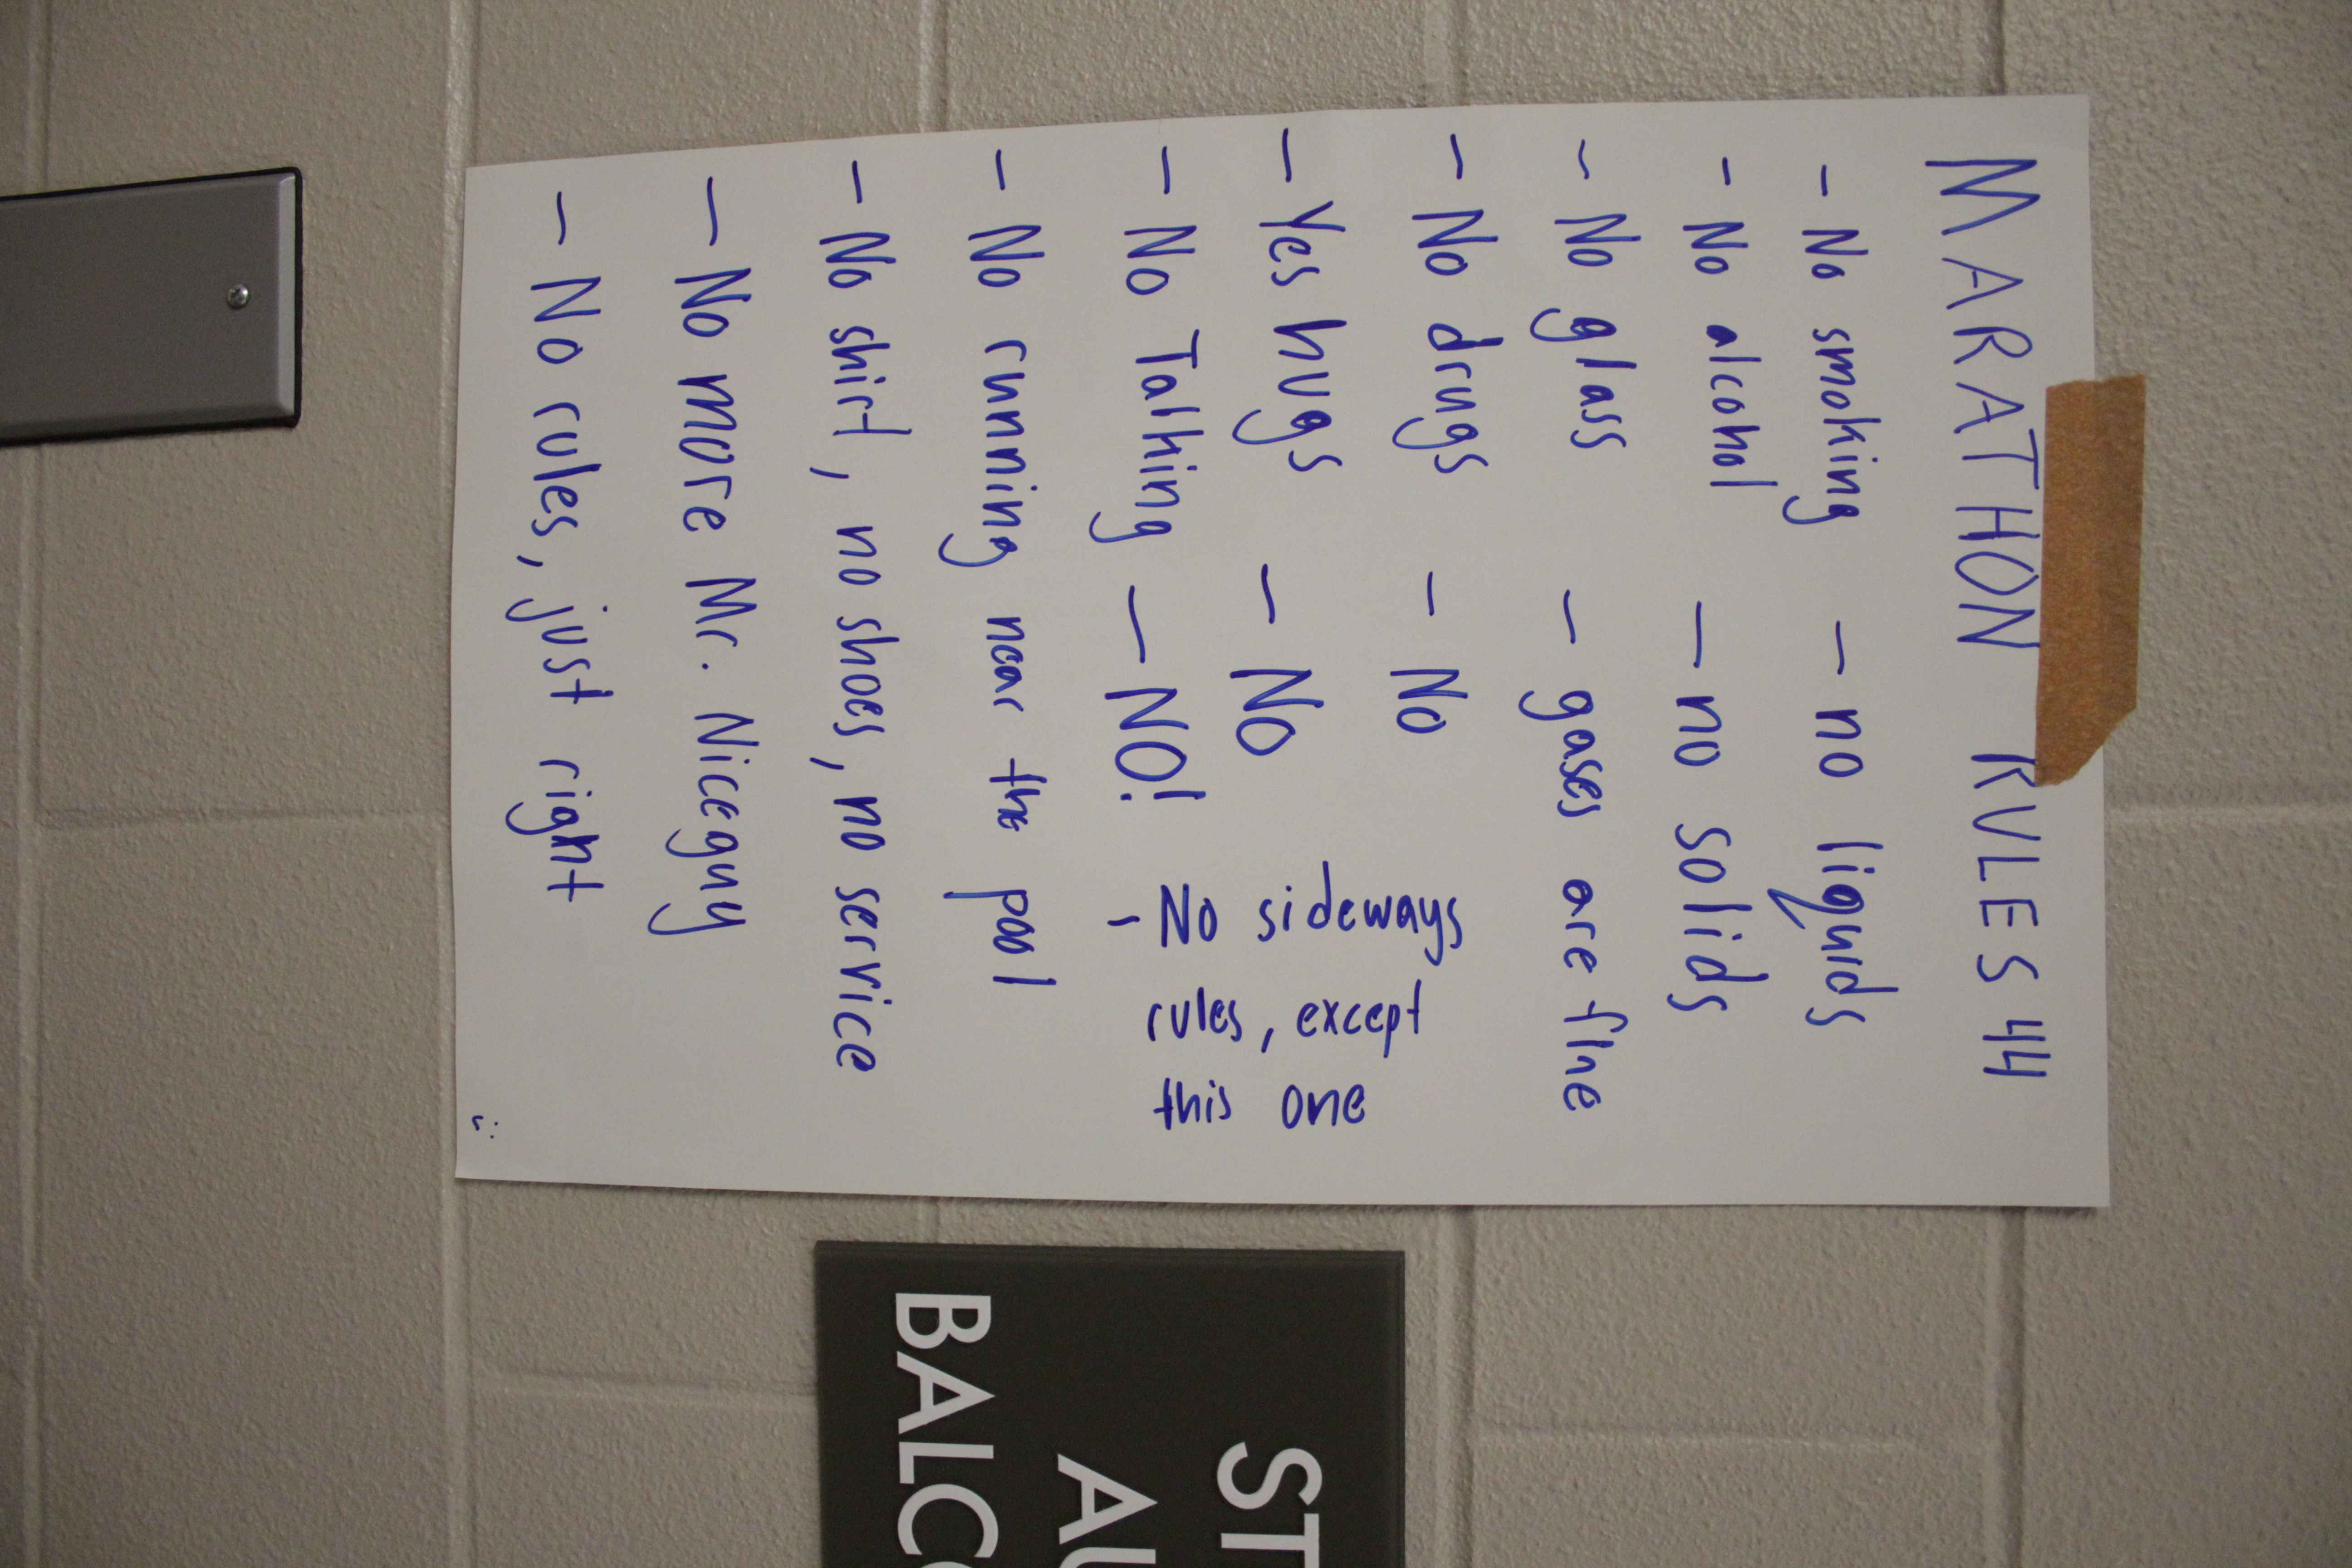 MARATHON RULES 44
- No smoking
- No alcohol
- No glass
- No drugs
- Yes hugs
- No Talking
- no liquids
- no solids
- gases are fine
- No
- No
- NO!
- No sideways
rules, except
this one
- No running near the pool
- No shirt, no shoes, no service
- No more Mr. Niceguy
- No rules, just right
ST
AU
BALCO